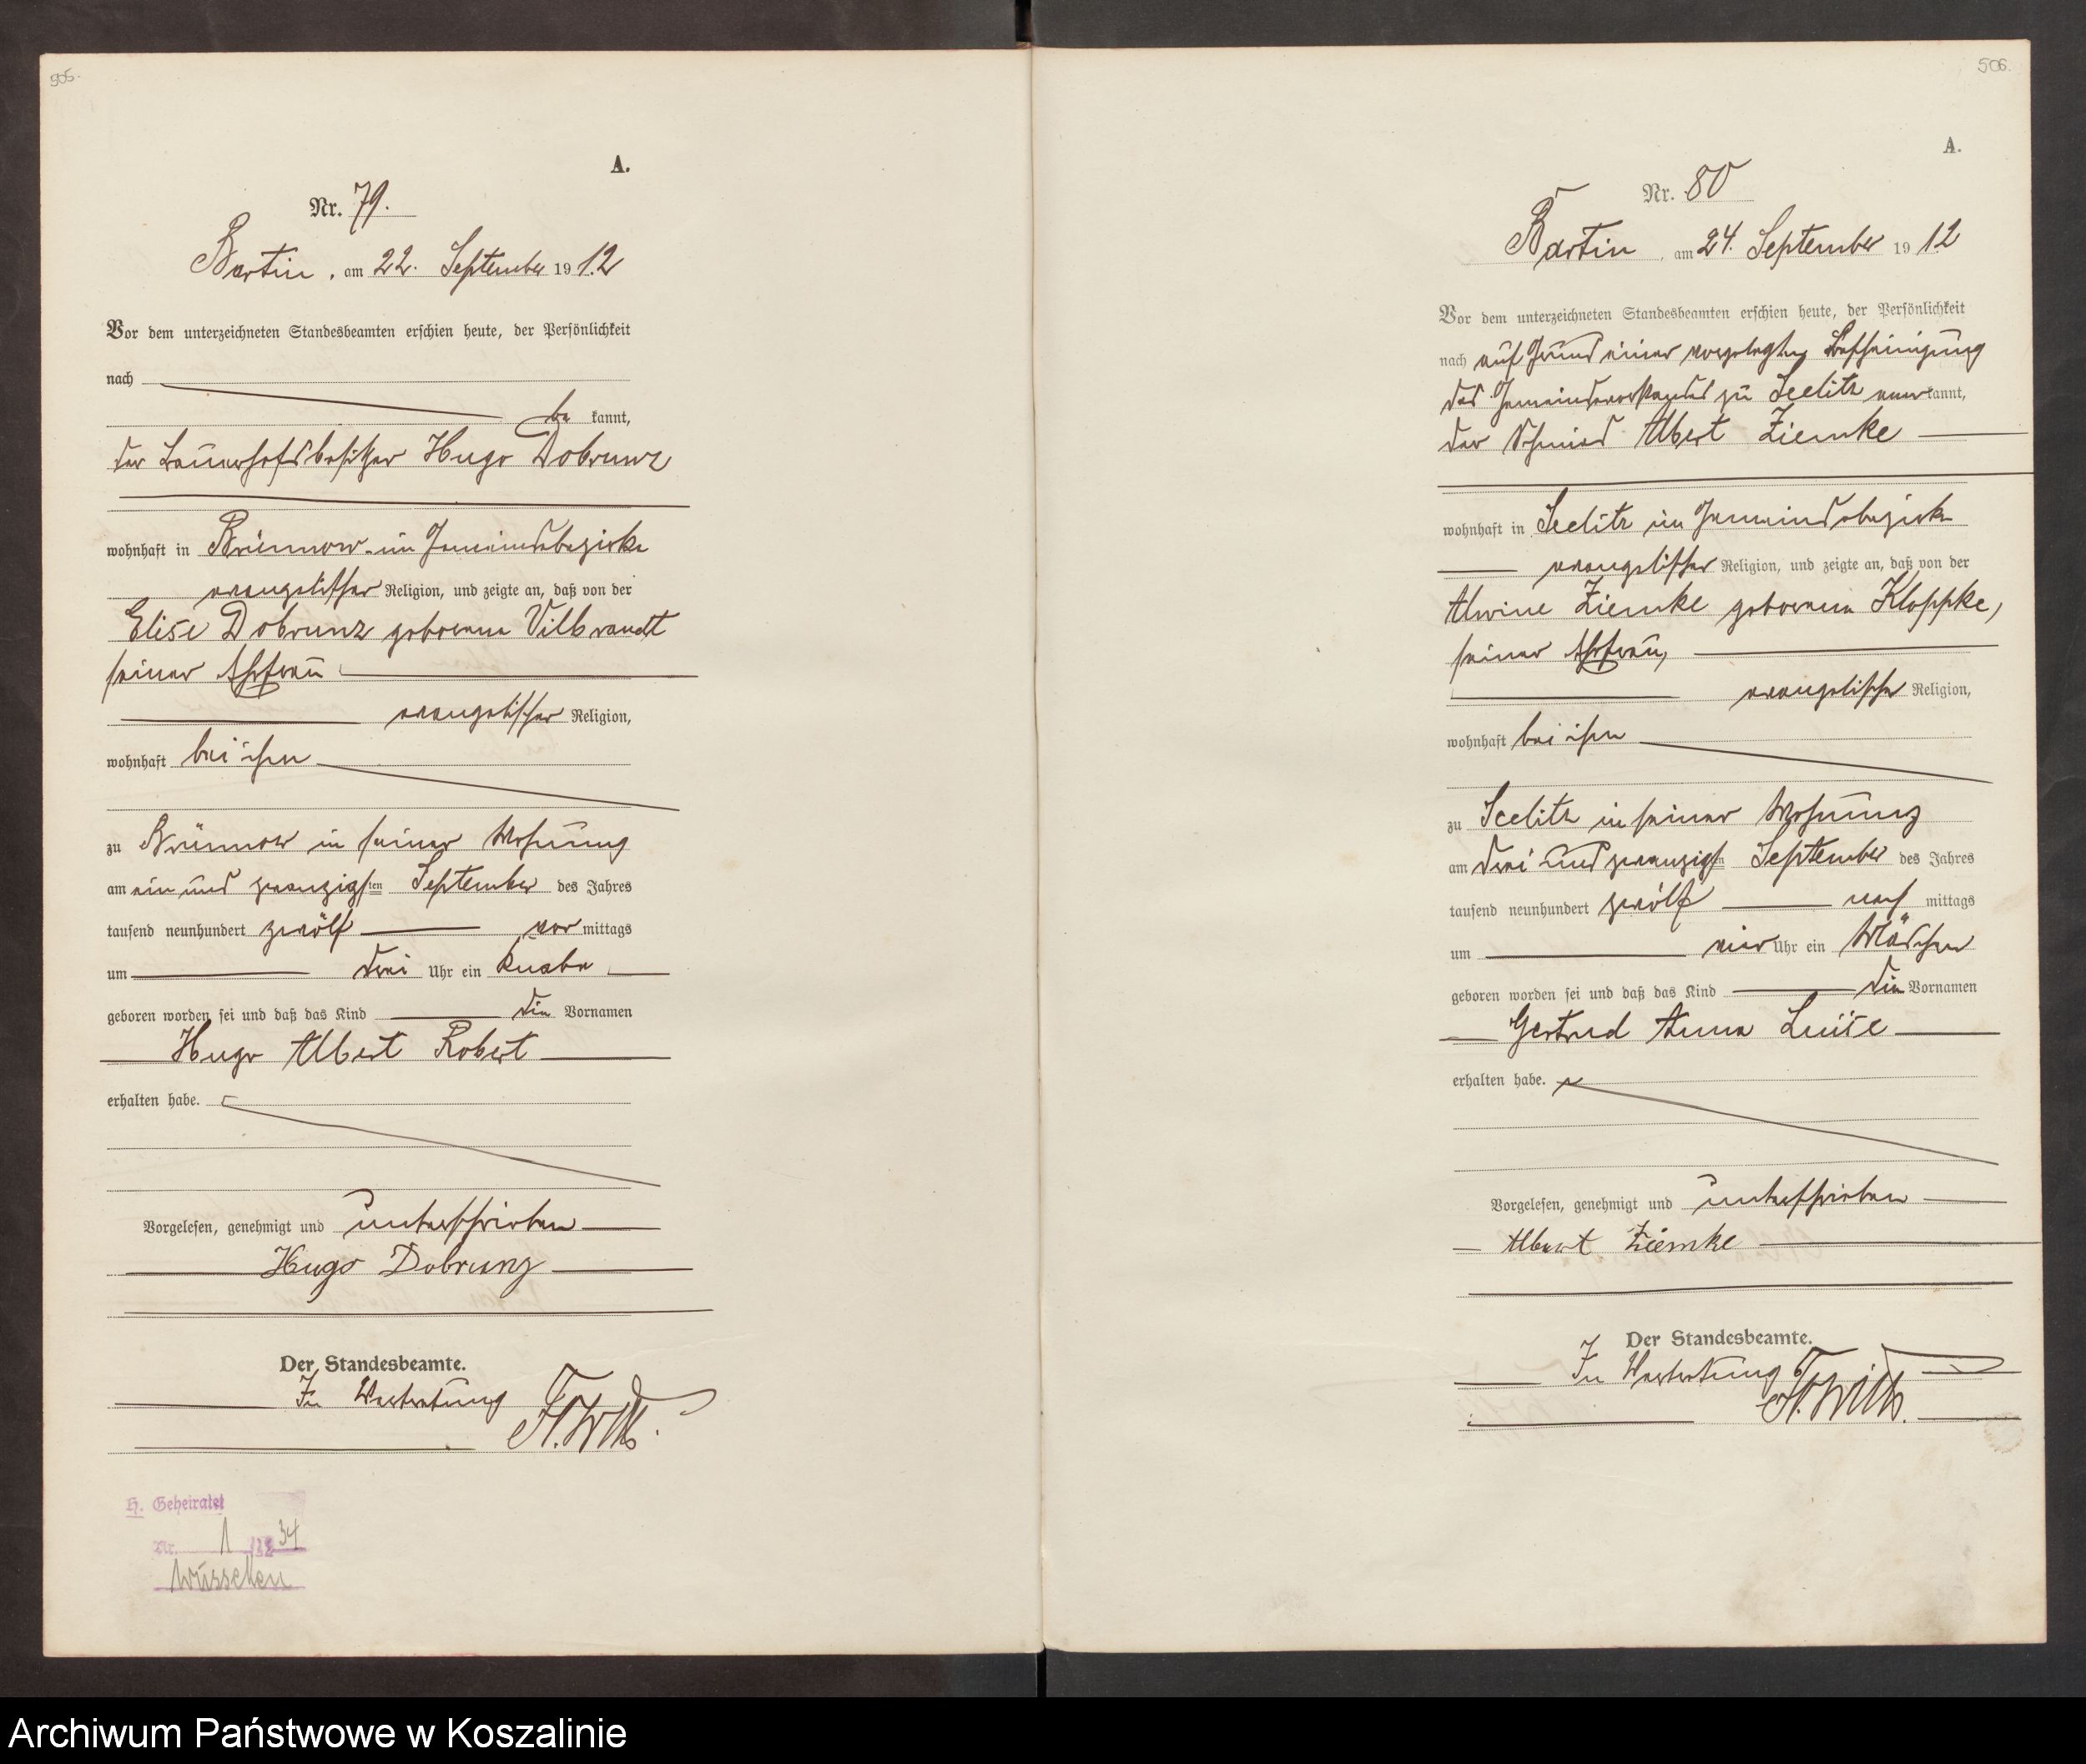 505.
A.
Nr. 79.
Bartin, am 22. September 1912
Vor dem unterzeichneten Standesbeamten erschien heute, der Persönlichkeit
nach
be kannt,
der Bauerhofsbesitzer Hugo Dobrunz
wohnhaft in Brünnow im Gemeindebezirke
evangelischer Religion, und zeigte an, daß von der
Elise Dobrunz geborene Vilbrandt
seiner Ehefrau
evangelischer Religion,
wohnhaft bei ihm
zu Brünnow in seiner Wohnung
am ein und zwanzigsten September des Jahres
tausend neunhundert zwölf vor mittags
um drei Uhr ein Knabe
geboren worden sei und daß das Kind die Vornamen
Hugo Albert Robert
erhalten habe.
Vorgelesen, genehmigt und unterschrieben
Hugo Dobrunz
Der Standesbeamte.
In Vertretung
H. Geheiratet
Nr. 1 34
Wusseken
506.
A.
Nr. 80
Bartin, am 24. September 1912
Vor dem unterzeichneten Standesbeamten erschien heute, der Persönlichkeit
nach auf Grund einer vorgelegten Bescheinigung
des Gemeindevorstandes zu Seelitz anerkannt,
der Schmied Albert Ziemke
wohnhaft in Seelitz im Gemeindebezirke
evangelischer Religion, und zeigte an, daß von der
Alwine Ziemke geborenen Kloppke,
seiner Ehefrau,
evangelischer Religion,
wohnhaft bei ihm
zu Seelitz in seiner Wohnung
am drei und zwanzigsten September des Jahres
tausend neunhundert zwölf nach mittags
um vier Uhr ein Mädchen
geboren worden sei und daß das Kind die Vornamen
Gertrud Anna Luise
erhalten habe.
Vorgelesen, genehmigt und unterschrieben
Albert Ziemke
Der Standesbeamte.
In Vertretung
Archiwum Państwowe w Koszalinie